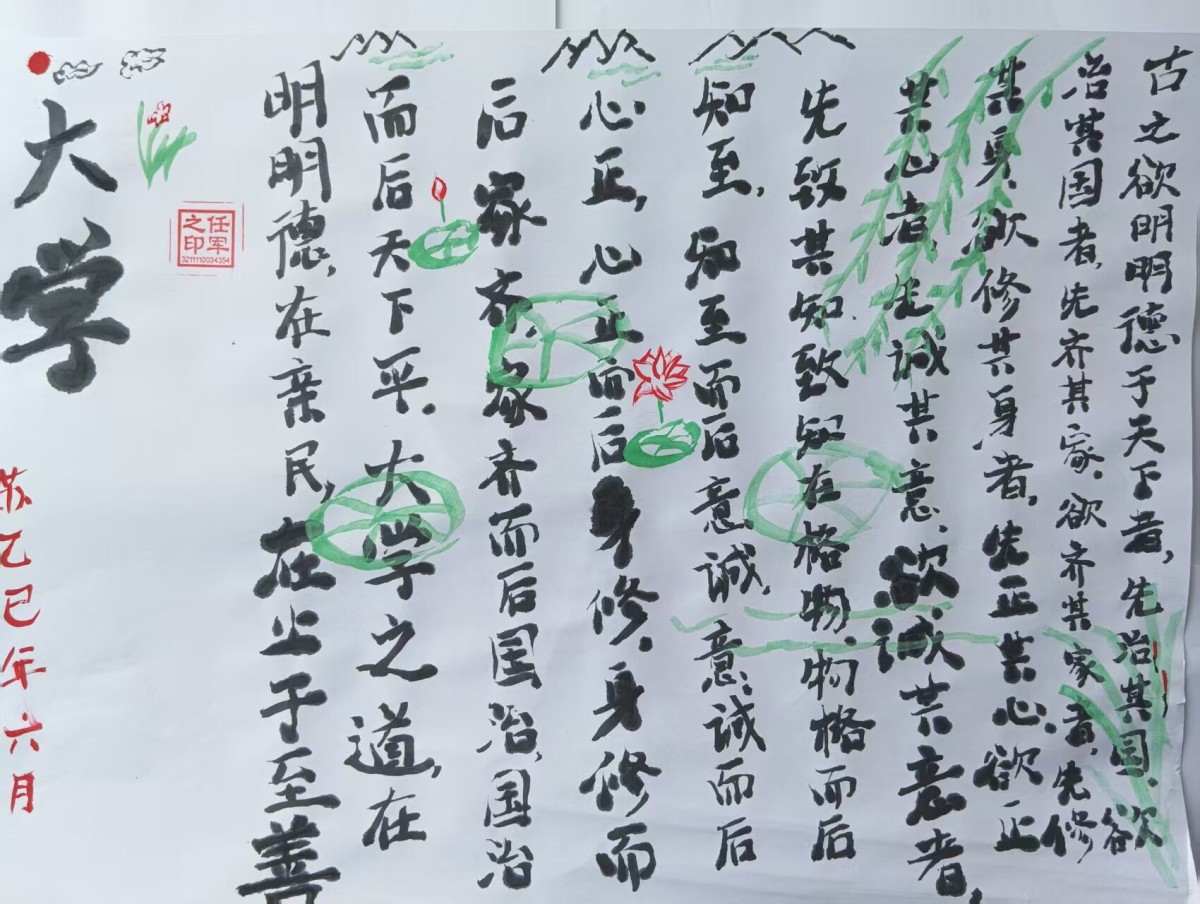 古之欲明明德于天下者,先治其国、欲
治其国者,先齐其家、欲齐其家者,先修
其身、欲修其身者,先正其心、欲正
其心者,先诚其意、欲诚其意者,
先致其知、致知在格物、物格而后
知至,知至而后意诚、意诚而后
心正,心正而后身修、身修而
后家齐、家齐而后国治,国治
而后天下平、大学之道,在
明明德,在亲民,在止于至善
大学
任军之印
3211110034354
苏乙巳年六月